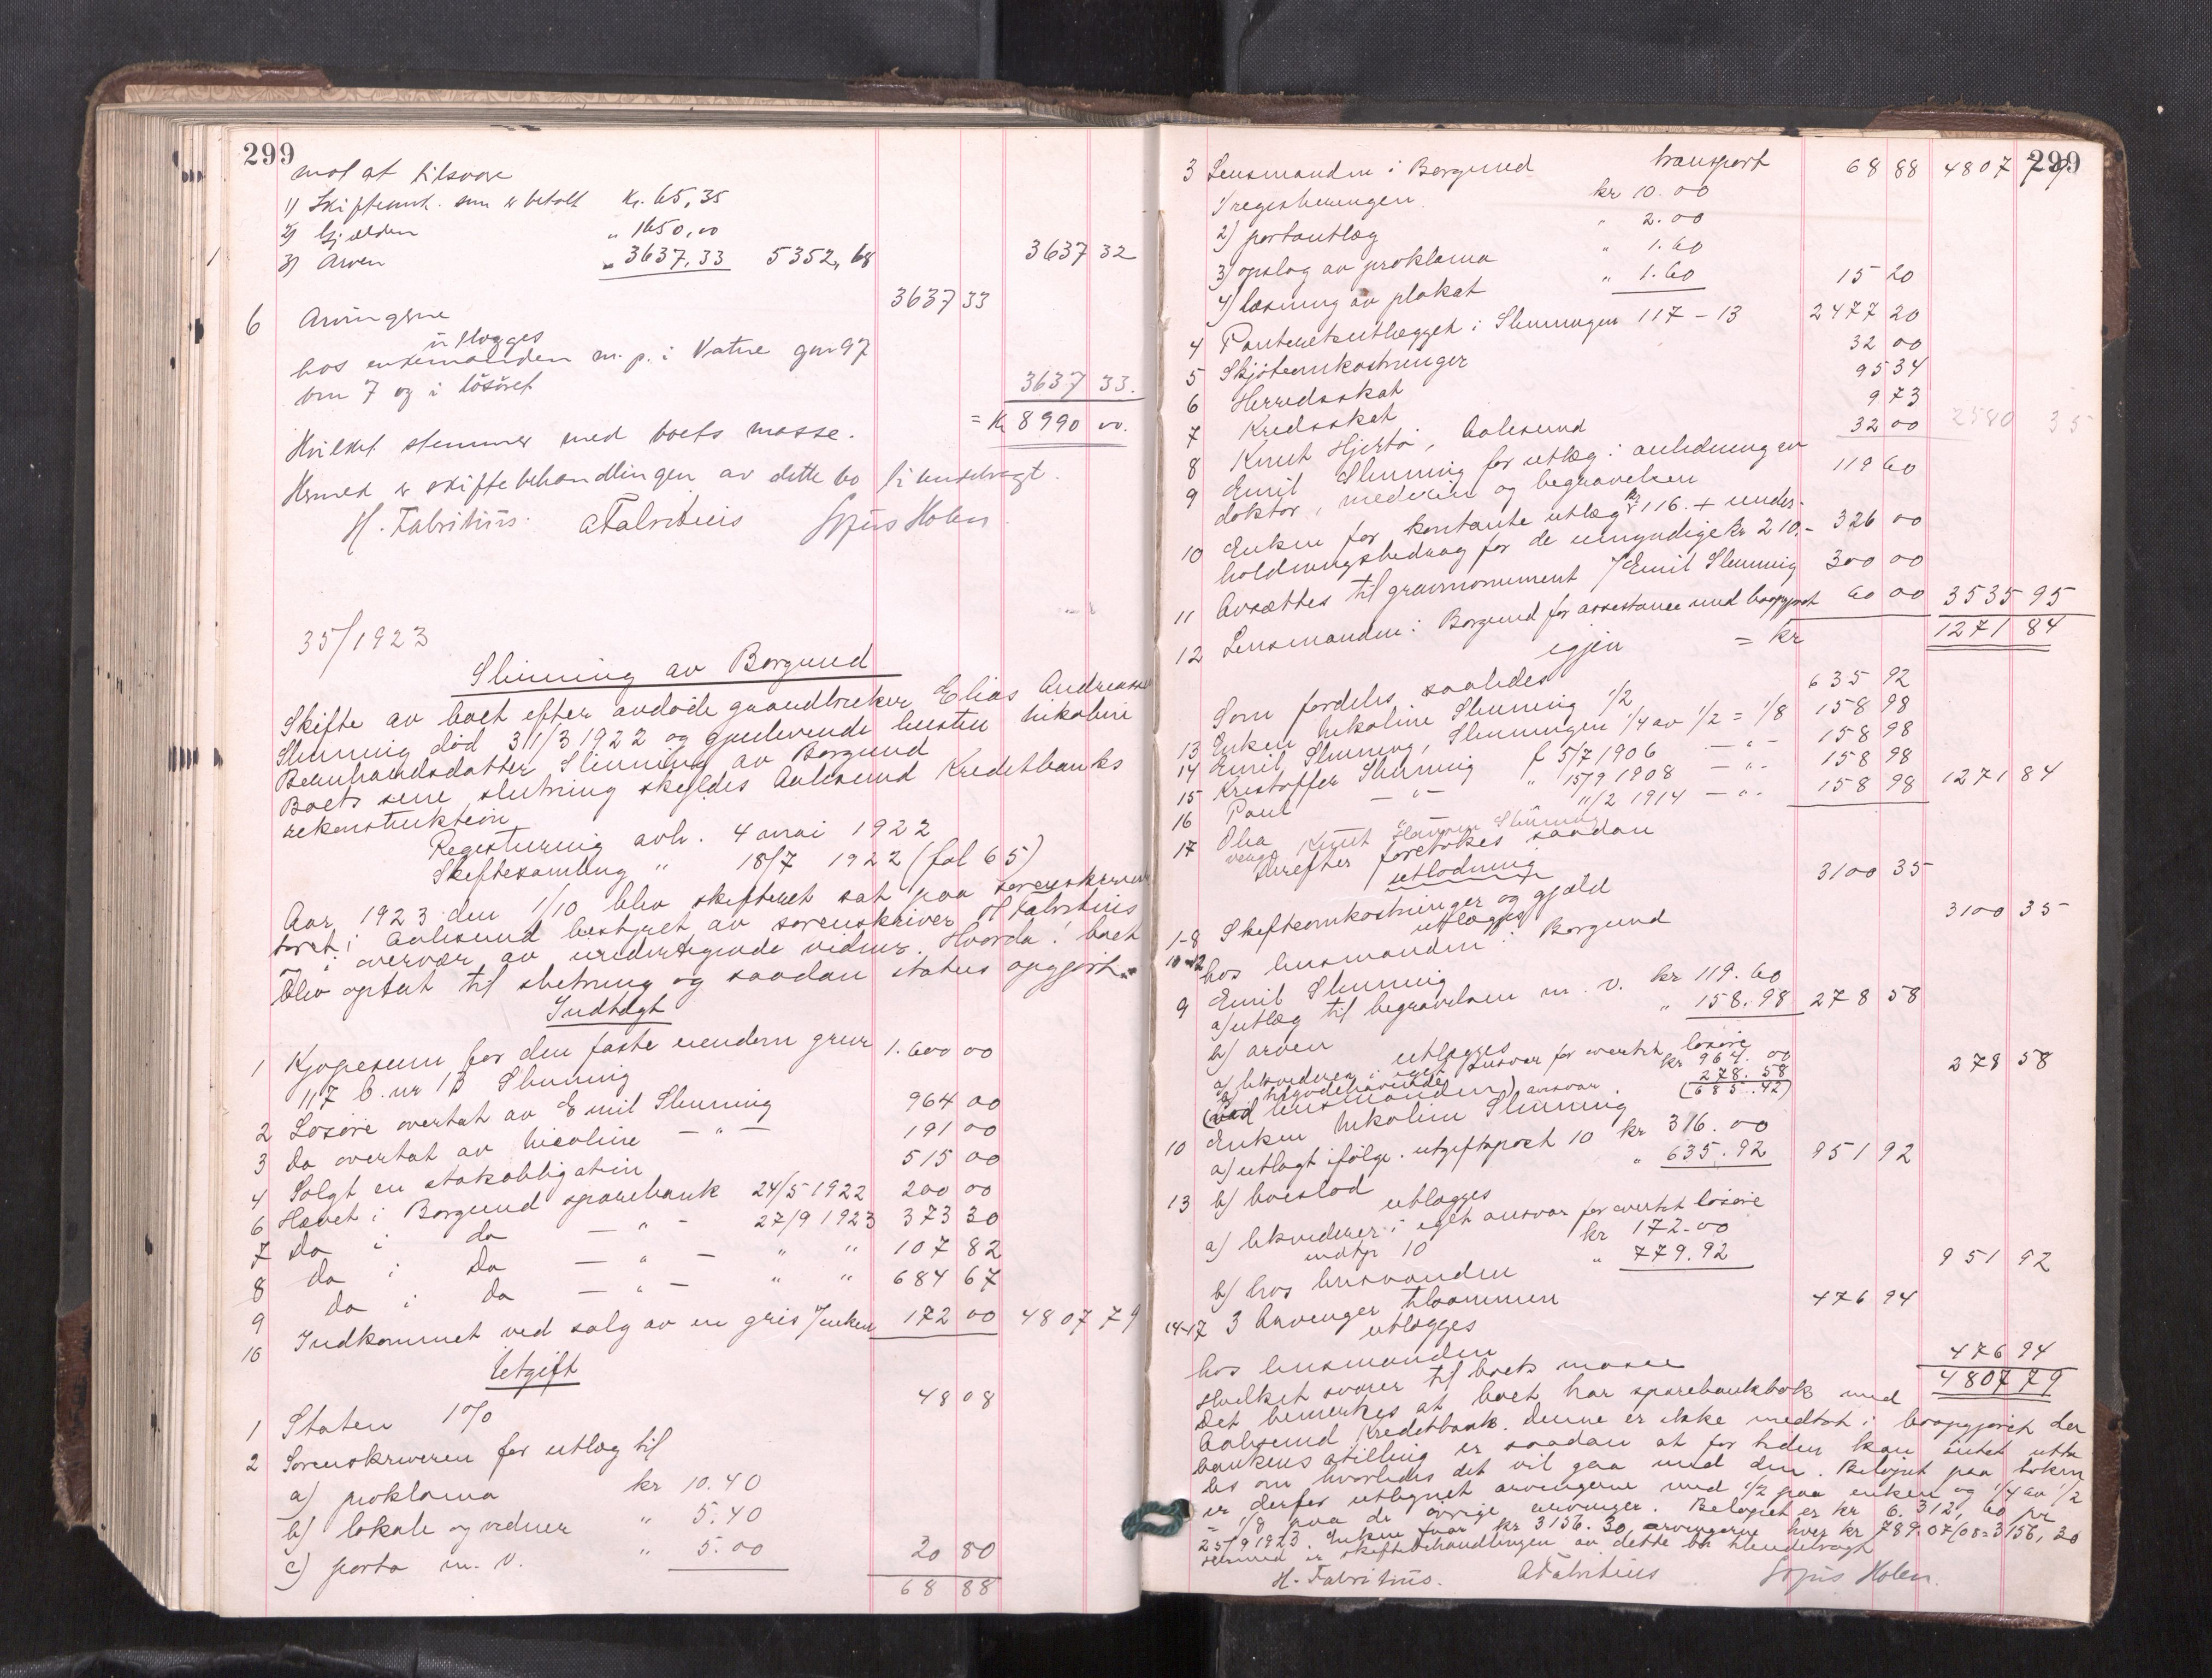 299
mot at tilsvare
1) Skifteomk. som er betalt Kr. 65,35
2) Gjælden " 1650,00
3) Arven " 3637,33 5352,68 3637 32
6 Arvingerne 3637 33
utlægges
hos enkemanden m. p. i Vatne gnr 97
bnr 7 og i løsøret 3637 33.
= Kr 8990 00.
Hvilket stemmer med boets masse.
Hermed er skiftebehandlingen av dette bo tilendebragt.
H. Fabritius. AFabritius Sofus Holen
35/1923
Slinning av Borgund
Skifte av boet efter avdøde gaardbruker Elias Andreassen
Slinning død 31/3 1922 og gjenlevende hustru Nikoline
Bernhardsdatter Slinning av Borgund
Boets sene slutning skyldes Aalesund Kreditbanks
rekonstruktion
Registrering avh. 4 mai 1922
Skiftesamling " 18/7 1922 (fol 65)
Aar 1923 den 1/10 blev skifteret sat paa sorenskriver
toret i Aalesund bestyret av sorenskriver H Fabritius
i overvær av undertegnede vidner. Hvorda! boet
blev optat til slutning og saadan status opgjort.
Indtægt
1 Kjøpesum for den faste eiendom gnr 1.600 00
117 b.nr 13 Slinning
2 Løsøre overtat av Emil Slinning 964 00
3 do overtat av Nicoline — " — 191 00
4 Solgt en statsobligation 515 00
6 Hævet i Borgund sparebank 24/5 1922 200 00
7 do i do — " — 27/9 1923 373 30
8 do i do — " — " " 107 82
9 do i do — " — " " 684 67
10 Indkommet ved salg av en gris /enken 172 00 4807 79
Utgift
1 Staten 1% 48 08
2 Sorenskriveren for utlæg til
a) proklama kr 10.40
b) lokale og vidner " 5.40
c) porto m. v. " 5.00 20 80
68 88
299
3 Lensmanden i Borgund transport 68 88 4807 79
1) registreringen kr 10.00
2) portoutlæg " 2.00
3) opslag av proklama " 1.60
4) læsning av plakat " 1.60 15 20
4 Panteretsutlægget i Slinningen 117-13 2477 20
5 Skjøteomkostninger 32 00
6 Herredsskat 95 34
7 Kredsskat 9 73
8 Knut Hjertø, Aalesund 32 00 2580 35
9 Emil Slinning for utlæg i anledning av
doktor, medicin og begravelsen 119 60
10 Enken for kontante utlæg kr 116. + under-
holdningsbidrag for de umyndige kr 210.- 326 00
11 Avsættes til gravmonument /Emil Slinning 300 00
12 Lensmanden i Borgund for assistance med boopgjøret 60 00 3535 95
igjen = kr 1271 84
Som fordeles saaledes
13 Enken Nikoline Slinning 1/2 635 92
14 Emil Slinning, Slinningen 1/4 av 1/2 = 1/8 158 98
15 Kristoffer Slinning f 5/7 1906 — " — 158 98
16 Paul — " — " 15/9 1908 — " — 158 98
17 Olia — " — " 11/2 1914 — " — 158 98 1271 84
verge Knut Hansen Slinning
Derefter foretokes saadan
utlodning
1-8 Skifteomkostninger og gjæld 3100 35
10-12 utlægges
hos lensmanden i Borgund 3100 35
9 Emil Slinning
a) utlæg til begravelsen m. v. kr 119.60
b) arven " 158.98 278 58
utlægges
a) likviderer i eget ansvar for overtat løsøre kr 964.00
b) tilgodehavende 278.58 278 58
(ved lensmanden) ansvar. (685.42)
10 Enken Nikoline Slinning
a) utlagt ifølge utgiftspost 10 kr 316.00
13 b) boeslod " 635.92 951 92
utlægges
a) likviderer i eget ansvar for overtat løsøre
indtp 10 kr 172.00
b) hos lensmanden " 779.92 951 92
14-17 3 Arvinger tilsammen 476 94
utlægges
hos lensmanden 476 94
Hvilket svarer til boets masse 4807 79
Det bemerkes at boet har sparebankbok med
Aalesund Kreditbank. Denne er ikke medtat i boopgjøret da
bankens stilling er saadan at for tiden kan intet utta
les om hvorledes det vil gaa med den. Beløpet paa boken
er derfor utlignet arvingerne med 1/2 paa enken og 1/4 av 1/2
= 1/8 paa de øvrige arvinger. Beløpet er kr 6.312,60 pr
25/9 1923. Enken faar kr 3156.30 arvingerne hver kr 789.07/08=3156,30
Hermed er skiftebehandlingen av dette bo tilendebragt
H. Fabritius. AFabritius Sofus Holen.